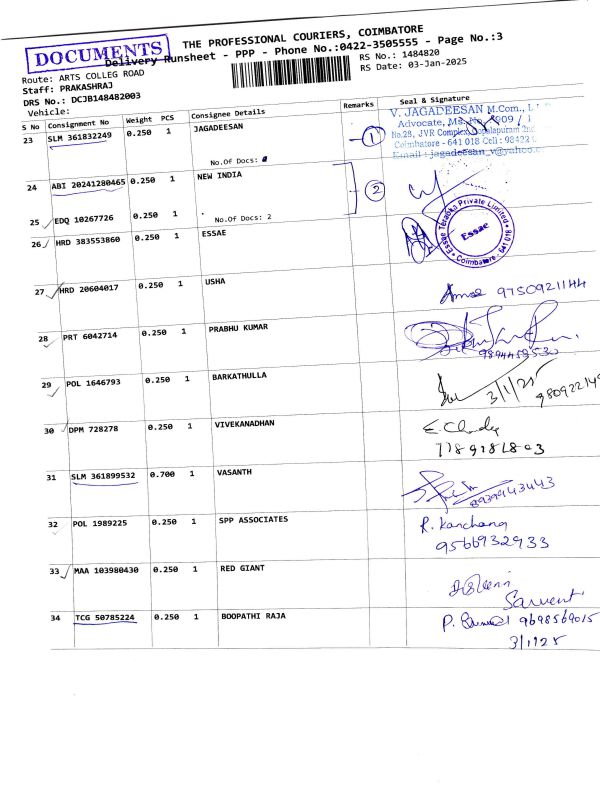 DOCUMENTS
THE PROFESSIONAL COURIERS, COIMBATORE
Delivery Runsheet - PPP - Phone No.:0422-3505555 - Page No.:3
Route: ARTS COLLEG ROAD
RS No.: 1484820
Staff: PRAKASHRAJ
RS Date: 03-Jan-2025
DRS No.: DCJB148482003
Vehicle:
S No Consignment No Weight PCS Consignee Details Remarks Seal & Signature
23 SLM 361832249 0.250 1 JAGADEESAN
No.Of Docs:
1
V. JAGADEESAN M.Com.,
Advocate, Ms. No. 909 /
No.28, JVR Complex, Gopalapuram 2nd
Coimbatore - 641 018 Cell : 98422
Email : jagadeesan_v@yahoo.c
24 ABI 20241280465 0.250 1 NEW INDIA
2
25 EDQ 10267726 0.250 1 .
No.Of Docs: 2
26 HRD 383553860 0.250 1 ESSAE
Essae Teraoka Private Limited
Essae
Coimbatore - 641 018
27 HRD 20604017 0.250 1 USHA
9750921144
28 PRT 6042714 0.250 1 PRABHU KUMAR
9894459530
29 POL 1646793 0.250 1 BARKATHULLA
3/1/25
30 DPM 728278 0.250 1 VIVEKANADHAN
31 SLM 361899532 0.700 1 VASANTH
8939943443
32 POL 1989225 0.250 1 SPP ASSOCIATES
R. Kanchana
9566932933
33 MAA 103980430 0.250 1 RED GIANT
34 TCG 50785224 0.250 1 BOOPATHI RAJA
9698569015
3/1/25